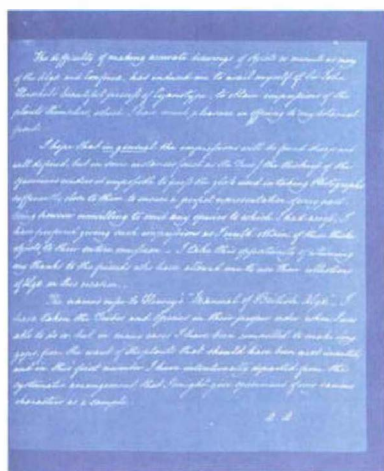 The difficulty of making accurate drawings of objects as minute as many
of the Algæ and Confervæ, has induced me to avail myself of Sir John
Herschel's beautiful process of Cyanotype, to obtain impressions of the
plants themselves, which I have much pleasure in offering to my botanical
friends.
I hope that in general the impressions will be found sharp and
well defined, but in some instances (such as the Fuci) the thickness of the
specimens renders it impossible to press the glass used in taking Photographs
sufficiently close to them to ensure a perfect representation of every part.
Being however unwilling to omit any species to which I had access, I
have preferred giving such impressions as I could obtain of these thick
objects, to their entire omission. - I take this opportunity of returning
my thanks to the friends who have allowed me to use their collections
of Algæ on this occasion. -
The names refer to Harvey's "Manual of British Algæ". I
have taken the Tribes and Species in their proper order when I was
able to do so, but in many cases I have been compelled to make long
gaps, from the want of the plants that should have been next inserted,
and in this first number I have intentionally departed from the
systematic arrangement that I might give specimens of very various
characters as a sample.
A. A.